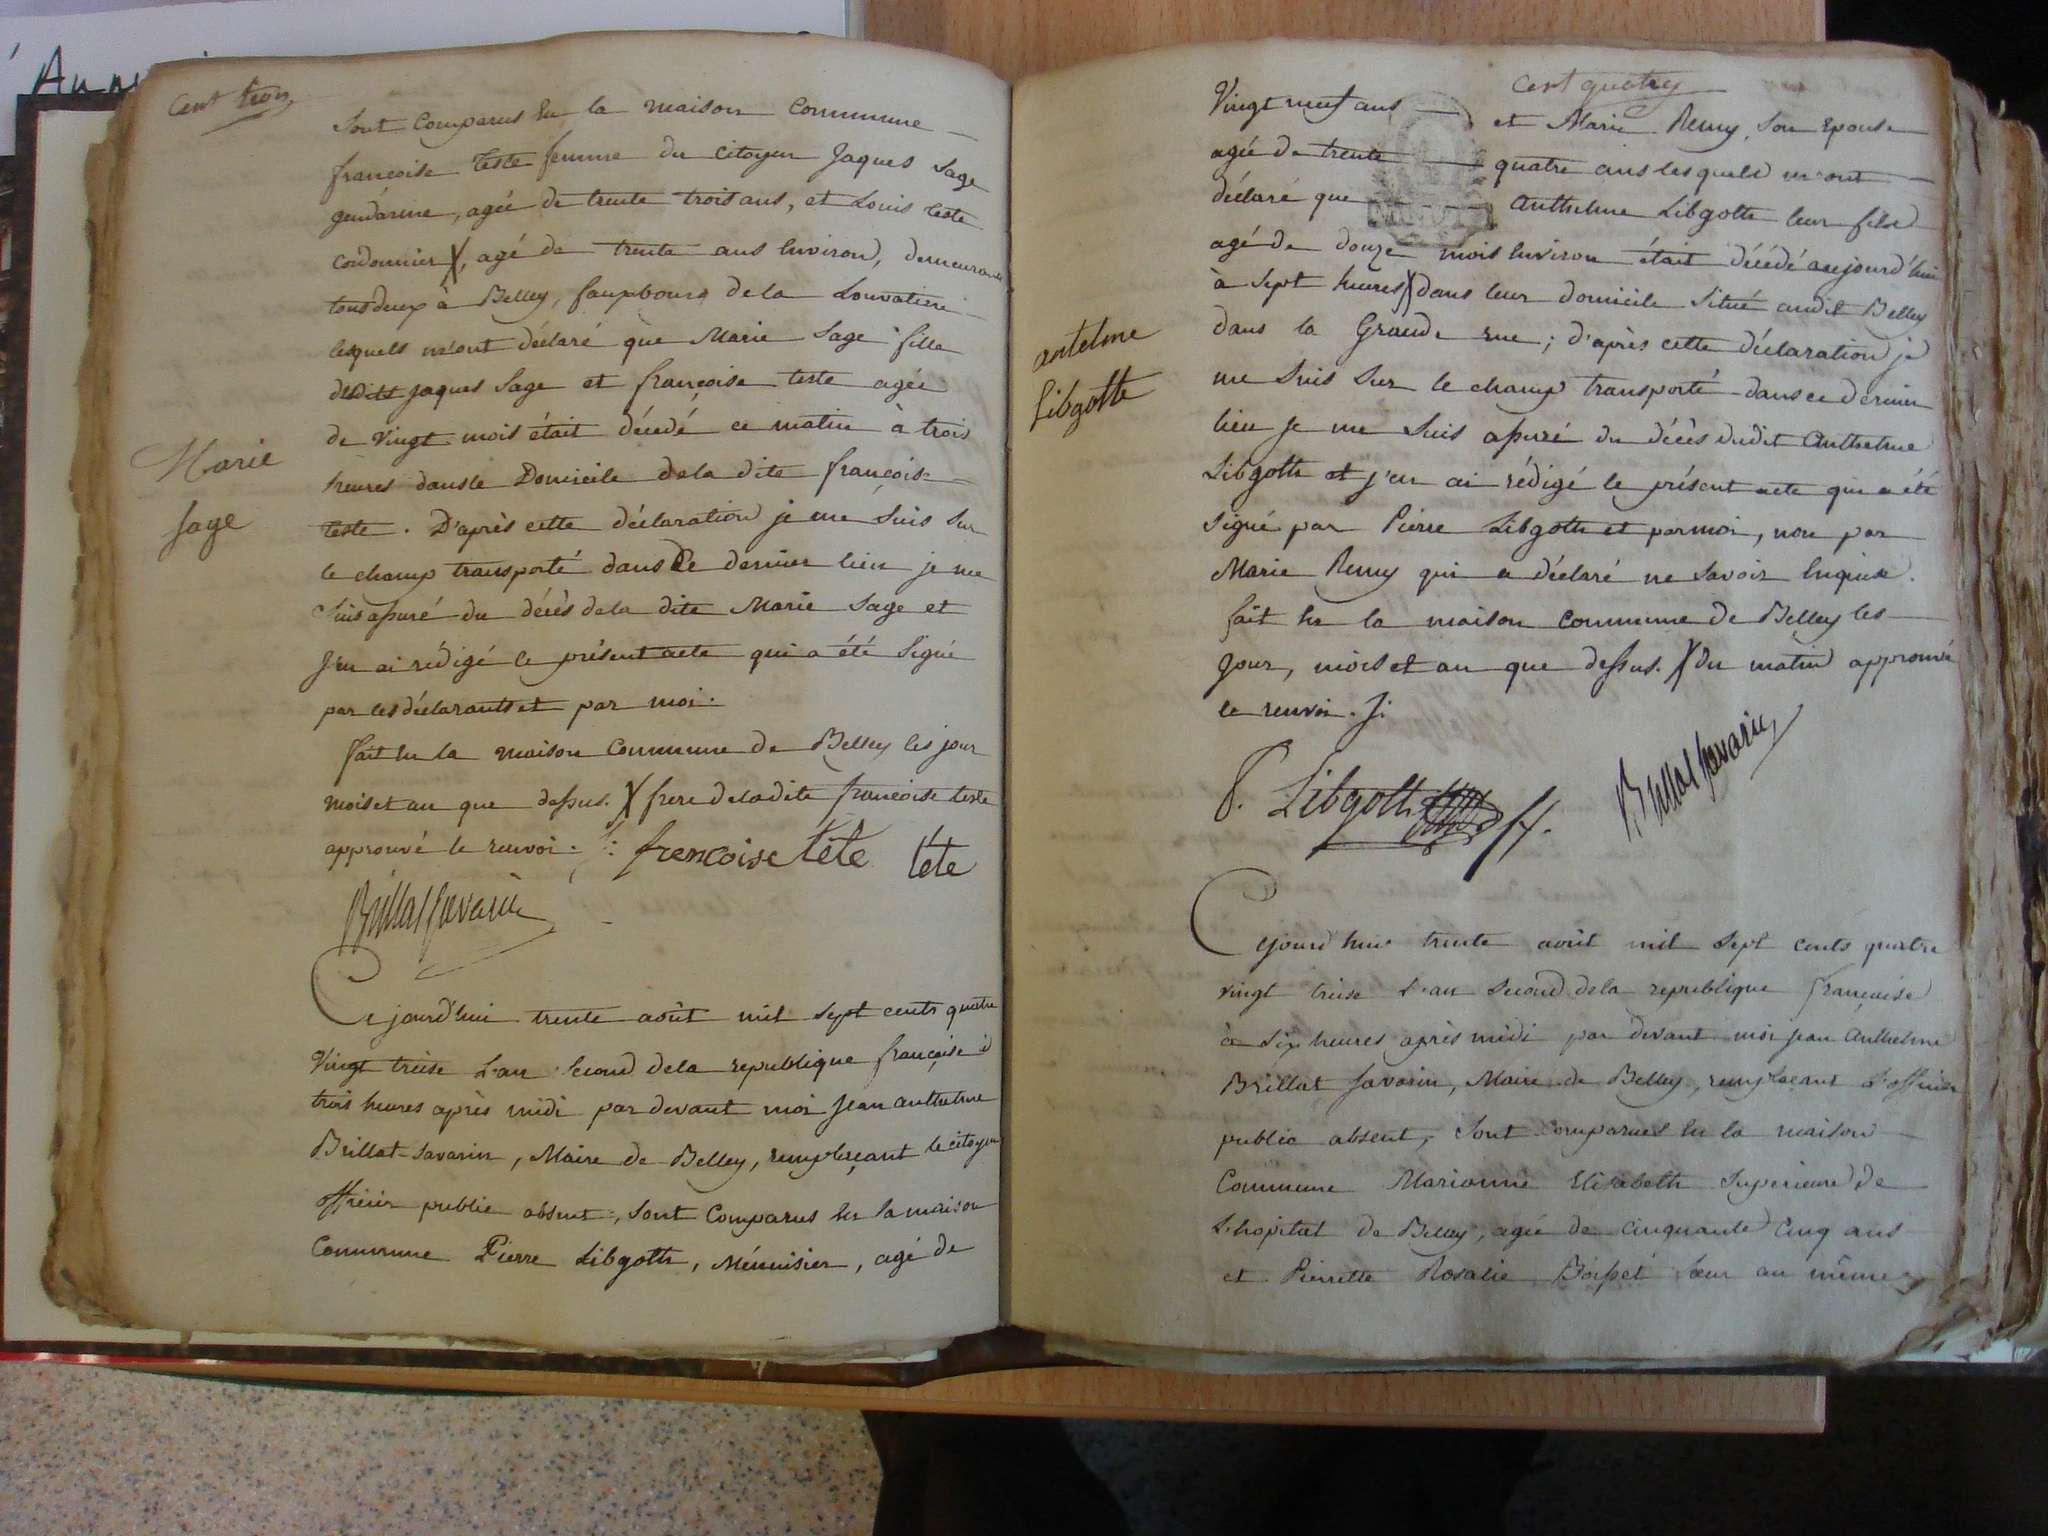 Cent trois
Sont Comparus en la maison Commune
françoise teste femme du citoyen Jaques Sage
gendarme, agée de trente trois ans, et Louis teste
cordonnier X, agé de trente ans environ, demeurants
tous deux à Belley, fauxbourg de la Louvatiere
lesquels m'ont déclaré que Marie Sage fille
desdits Jaques Sage et françoise teste agée
de vingt mois était décédé ce matin à trois
heures dans le Domicile de la dite françoise
teste. D'après cette déclaration je me suis sur
le champ transporté dans ce dernier lieu je me
suis assuré du décès de la dite Marie Sage et
j'en ai rédigé le présent acte qui a été signé
par les déclarants et par moi.
fait en la maison Commune de Belley les jour
mois et an que dessus. X frere de la dite françoise teste
approuvé le renvoi.
frencoise tête tête
Brillat Savarin
Marie
Sage
Cejourd'hui trente août mil sept cents quatre
vingt treise L'an second de la republique française à
trois heures après midi par devant moi Jean anthelme
Brillat-Savarin, Maire de Belley, remplaçant le citoyen
officier public absent, sont Comparus en la maison
Commune Pierre Libgoth, Ménuisier, agé de
Cent quatre
Vingt neuf ans et Marie Remy son epouse
agée de trente quatre ans lesquels m'ont
déclaré que Anthelme Libgoth leur fils
agé de douze mois environ était décédé aujourd'hui
à sept heures X dans leur domicile situé audit Belley
dans la Grande rue; d'après cette déclaration je
me suis sur le champ transporté dans ce dernier
lieu je me suis assuré du décès dudit Anthelme
Libgoth et j'en ai rédigé le présent acte qui a été
signé par Pierre Libgoth et par moi, non par
Marie Remy qui a déclaré ne savoir
fait en la maison commune de Belley les
jour, mois et an que dessus. X du matin approuvé
le renvoi.
antelme
Libgotte
P. Libgoth
Brillat Savarin
Cejourd'hui trente août mil sept cents quatre
vingt treise L'an second de la republique française
à six heures après midi par devant moi Jean Anthelme
Brillat Savarin, Maire de Belley, remplaçant L'officier
public absent, sont comparues en la maison
Commune Marianne Elisabeth Superieure de
L'hopital de Belley, agée de cinquante cinq ans
et Pierrette Rosalie Boisset sœur au même